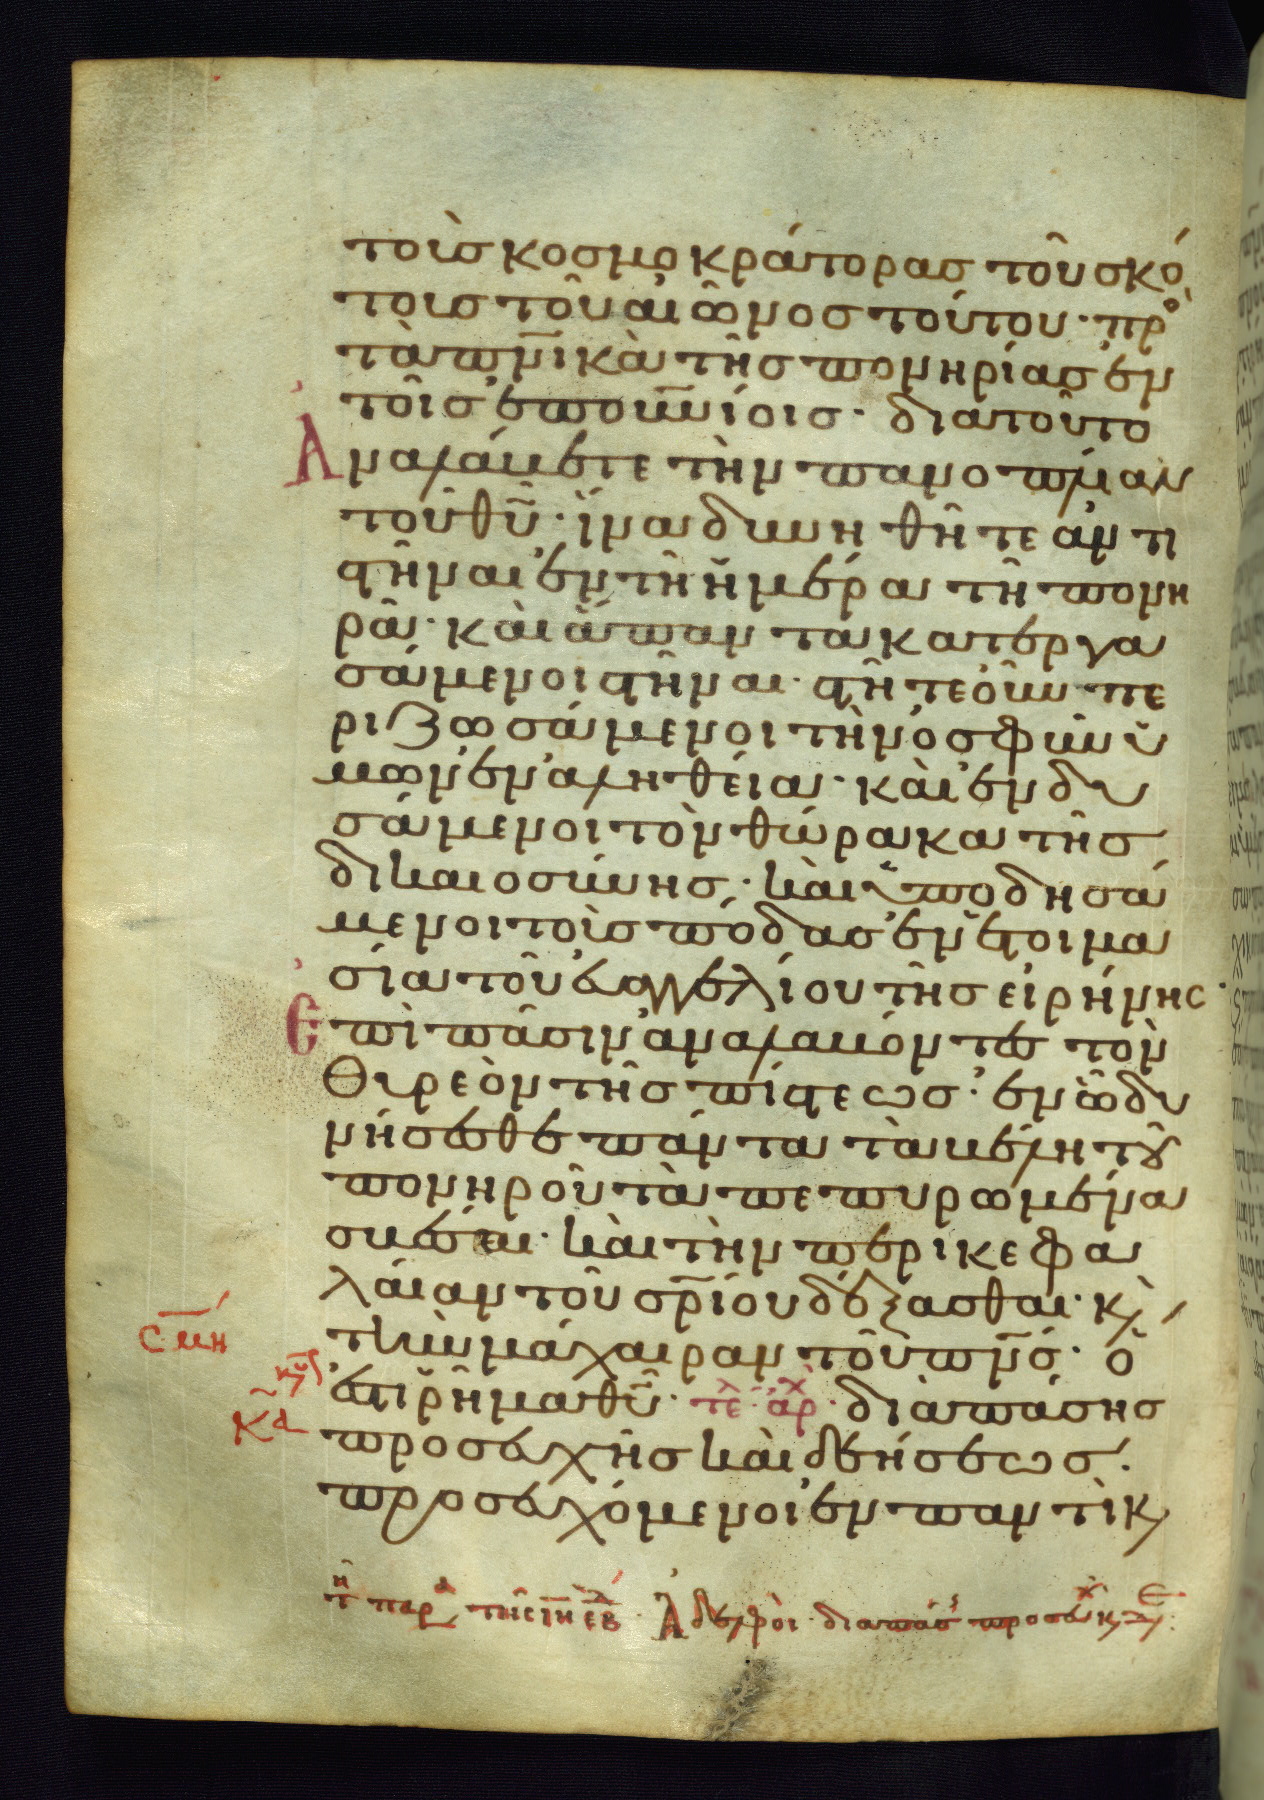 τοὺς κοσμοκράτορας τοῦ σκό
τους τοῦ αἰῶνος τούτου· πρὸ
τὰ πν̅ικὰ τῆς πονηρίας ἐν
τοῖς ἐπουν̅ίοις· διατοῦτο
Ἀναλάβετε τὴν πανοπλίαν
τοῦ θυ̅· ἵνα δυνηθῆτε ἀντι
στῆναι ἐν τῇ ἡμέρα τῇ πονη
ρᾶ· καὶ ἅπαντα κατεργα
σάμενοι στῆναι· στῆτε οὖν πε
ριζωσάμενοι τὴν ὀσφὺν ὑ
μῶν ἐν ἀληθεία· καὶ ἐνδυ
σάμενοι τὸν θώρακα τῆς
δικαιοσύνης· καὶ ὑποδησά
μενοι τοὺς πόδας ἐν ἑτοιμα
σία τοῦ εὐαγγελίου τῆς εἰρήνης·
Ἐπὶ πᾶσιν ἀναλαβόντες τὸν
θυρεὸν τῆς πίστεως· ἐν ὧ δυ
νήσεσθε πάντα τὰ βέλη τοῦ
πονηροῦ τὰ πεπυρωμένα
σβέσαι· καὶ τὴν περικεφα
λαίαν τοῦ σρ̅ίου δέξασθαι· κὶ
τὴν μάχαιραν τοῦ πν̅ς· ὅ
ἐστι ῥῆμα θυ̅· τε αρχ· διὰ πάσης
προσευχῆς καὶ δεήσεως·
προσευχόμενοι ἐν παντὶ κ
τῆ παρα τῆς ιη εβ Ἀδελφοὶ δια πάσ προσευχ κ